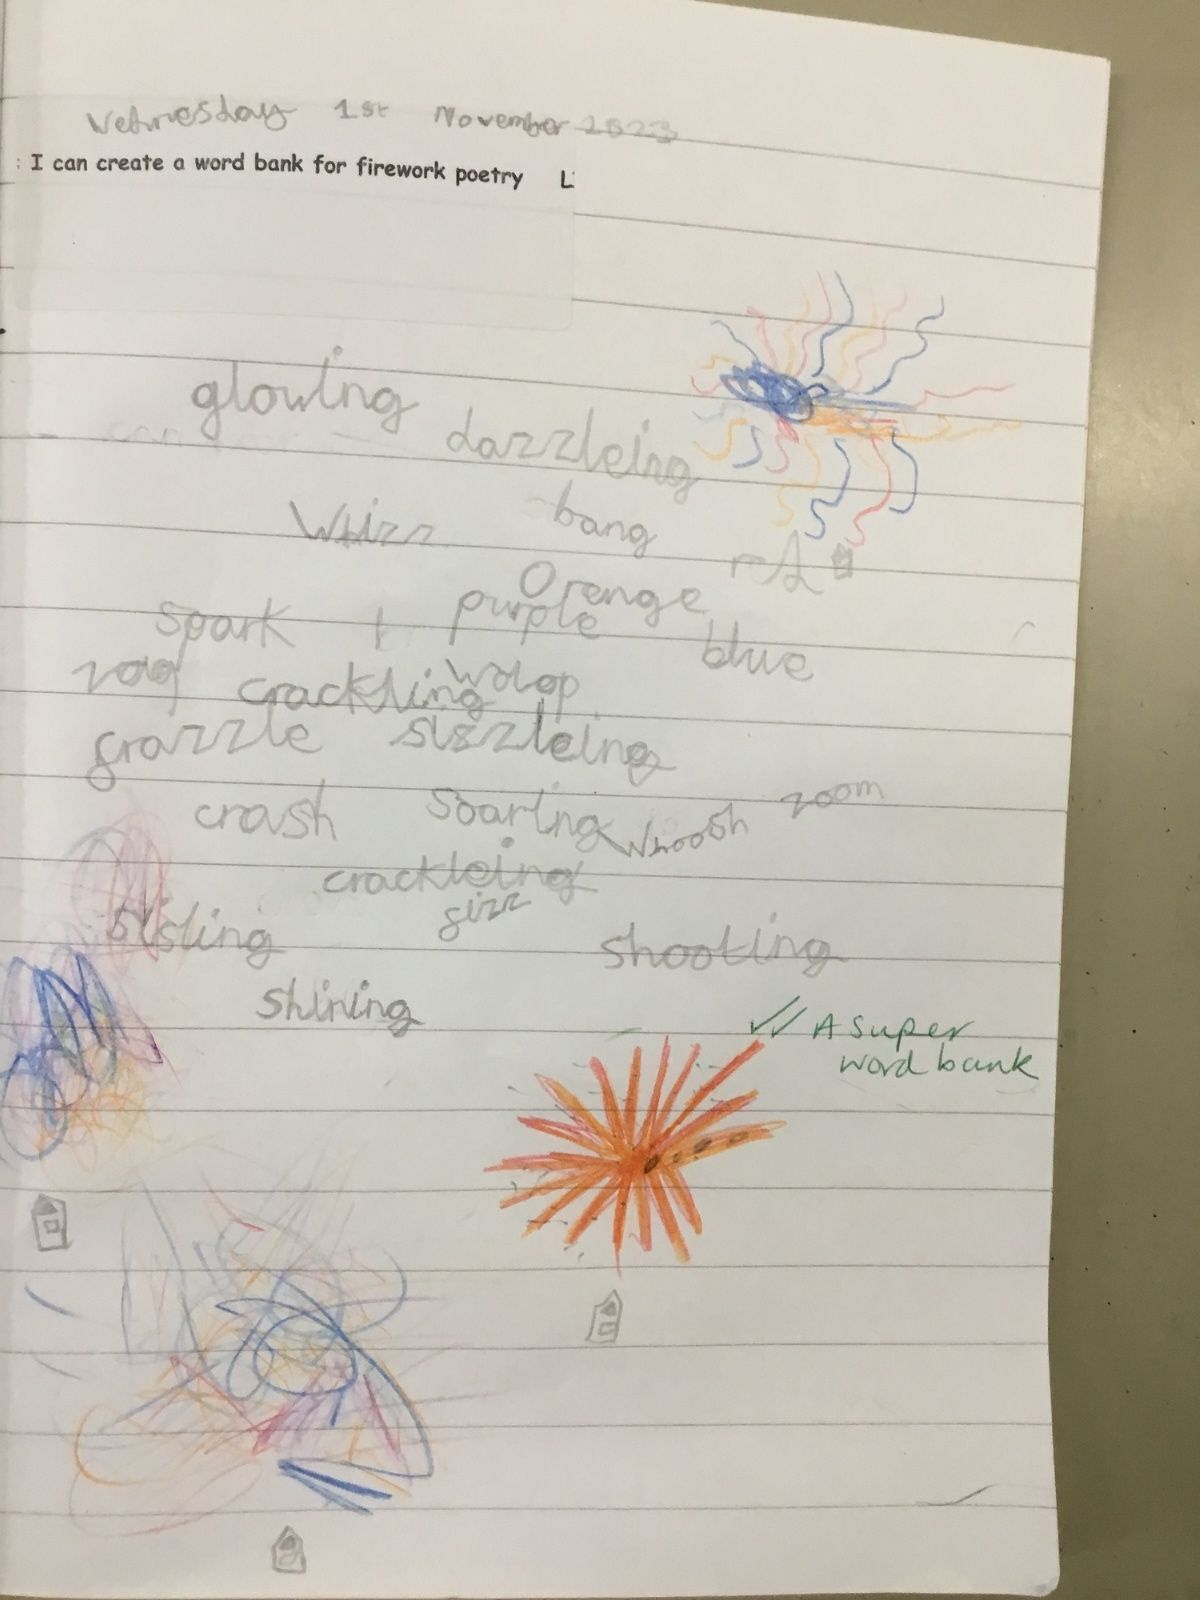 Wetnesday 1st November 2023
: I can create a word bank for firework poetry L
glowing
dazzleing
Whizz bang
red
Orenge
spark purple blue
zag crackling wolop
frazzle sizzleing
crash Soaring Whoosh zoom
crackleing
fizz
shooting
shining
✓✓ A super
word bank